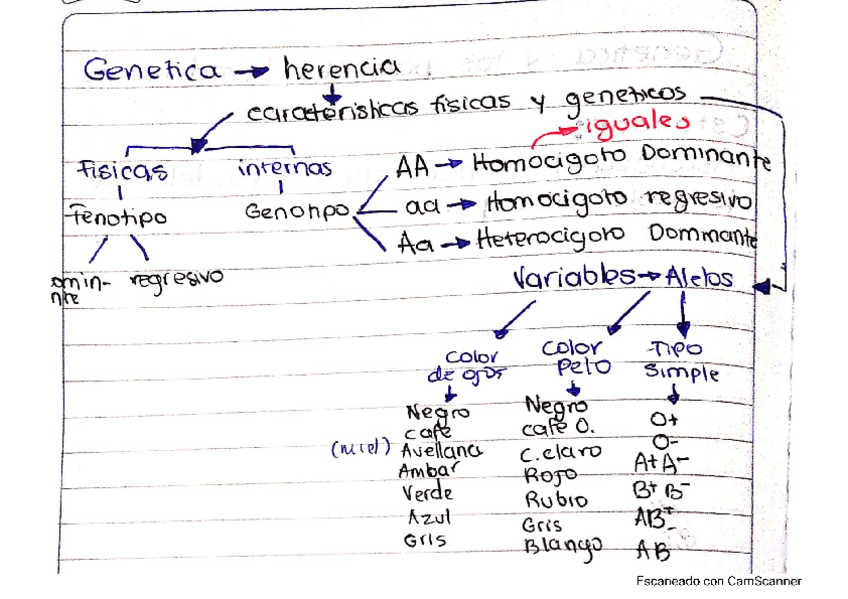 Genetica → herencia
caracteristicas fisicas y geneticos
iguales
fisicas internas AA → Homocigoto Dominante
Fenotipo Genotipo aa → Homocigoto regresivo
Aa → Heterocigoto Dominante
omin- regresivo
nte
Variables → Alelos
Color Color Tipo
de ojos Pelo Simple
Negro Negro O+
cafe cafe O. O-
(miel) Avellana C.claro A+ A-
Ambar Rojo B+ B-
Verde Rubio AB+
Azul Gris AB
Gris Blanco
Escaneado con CamScanner